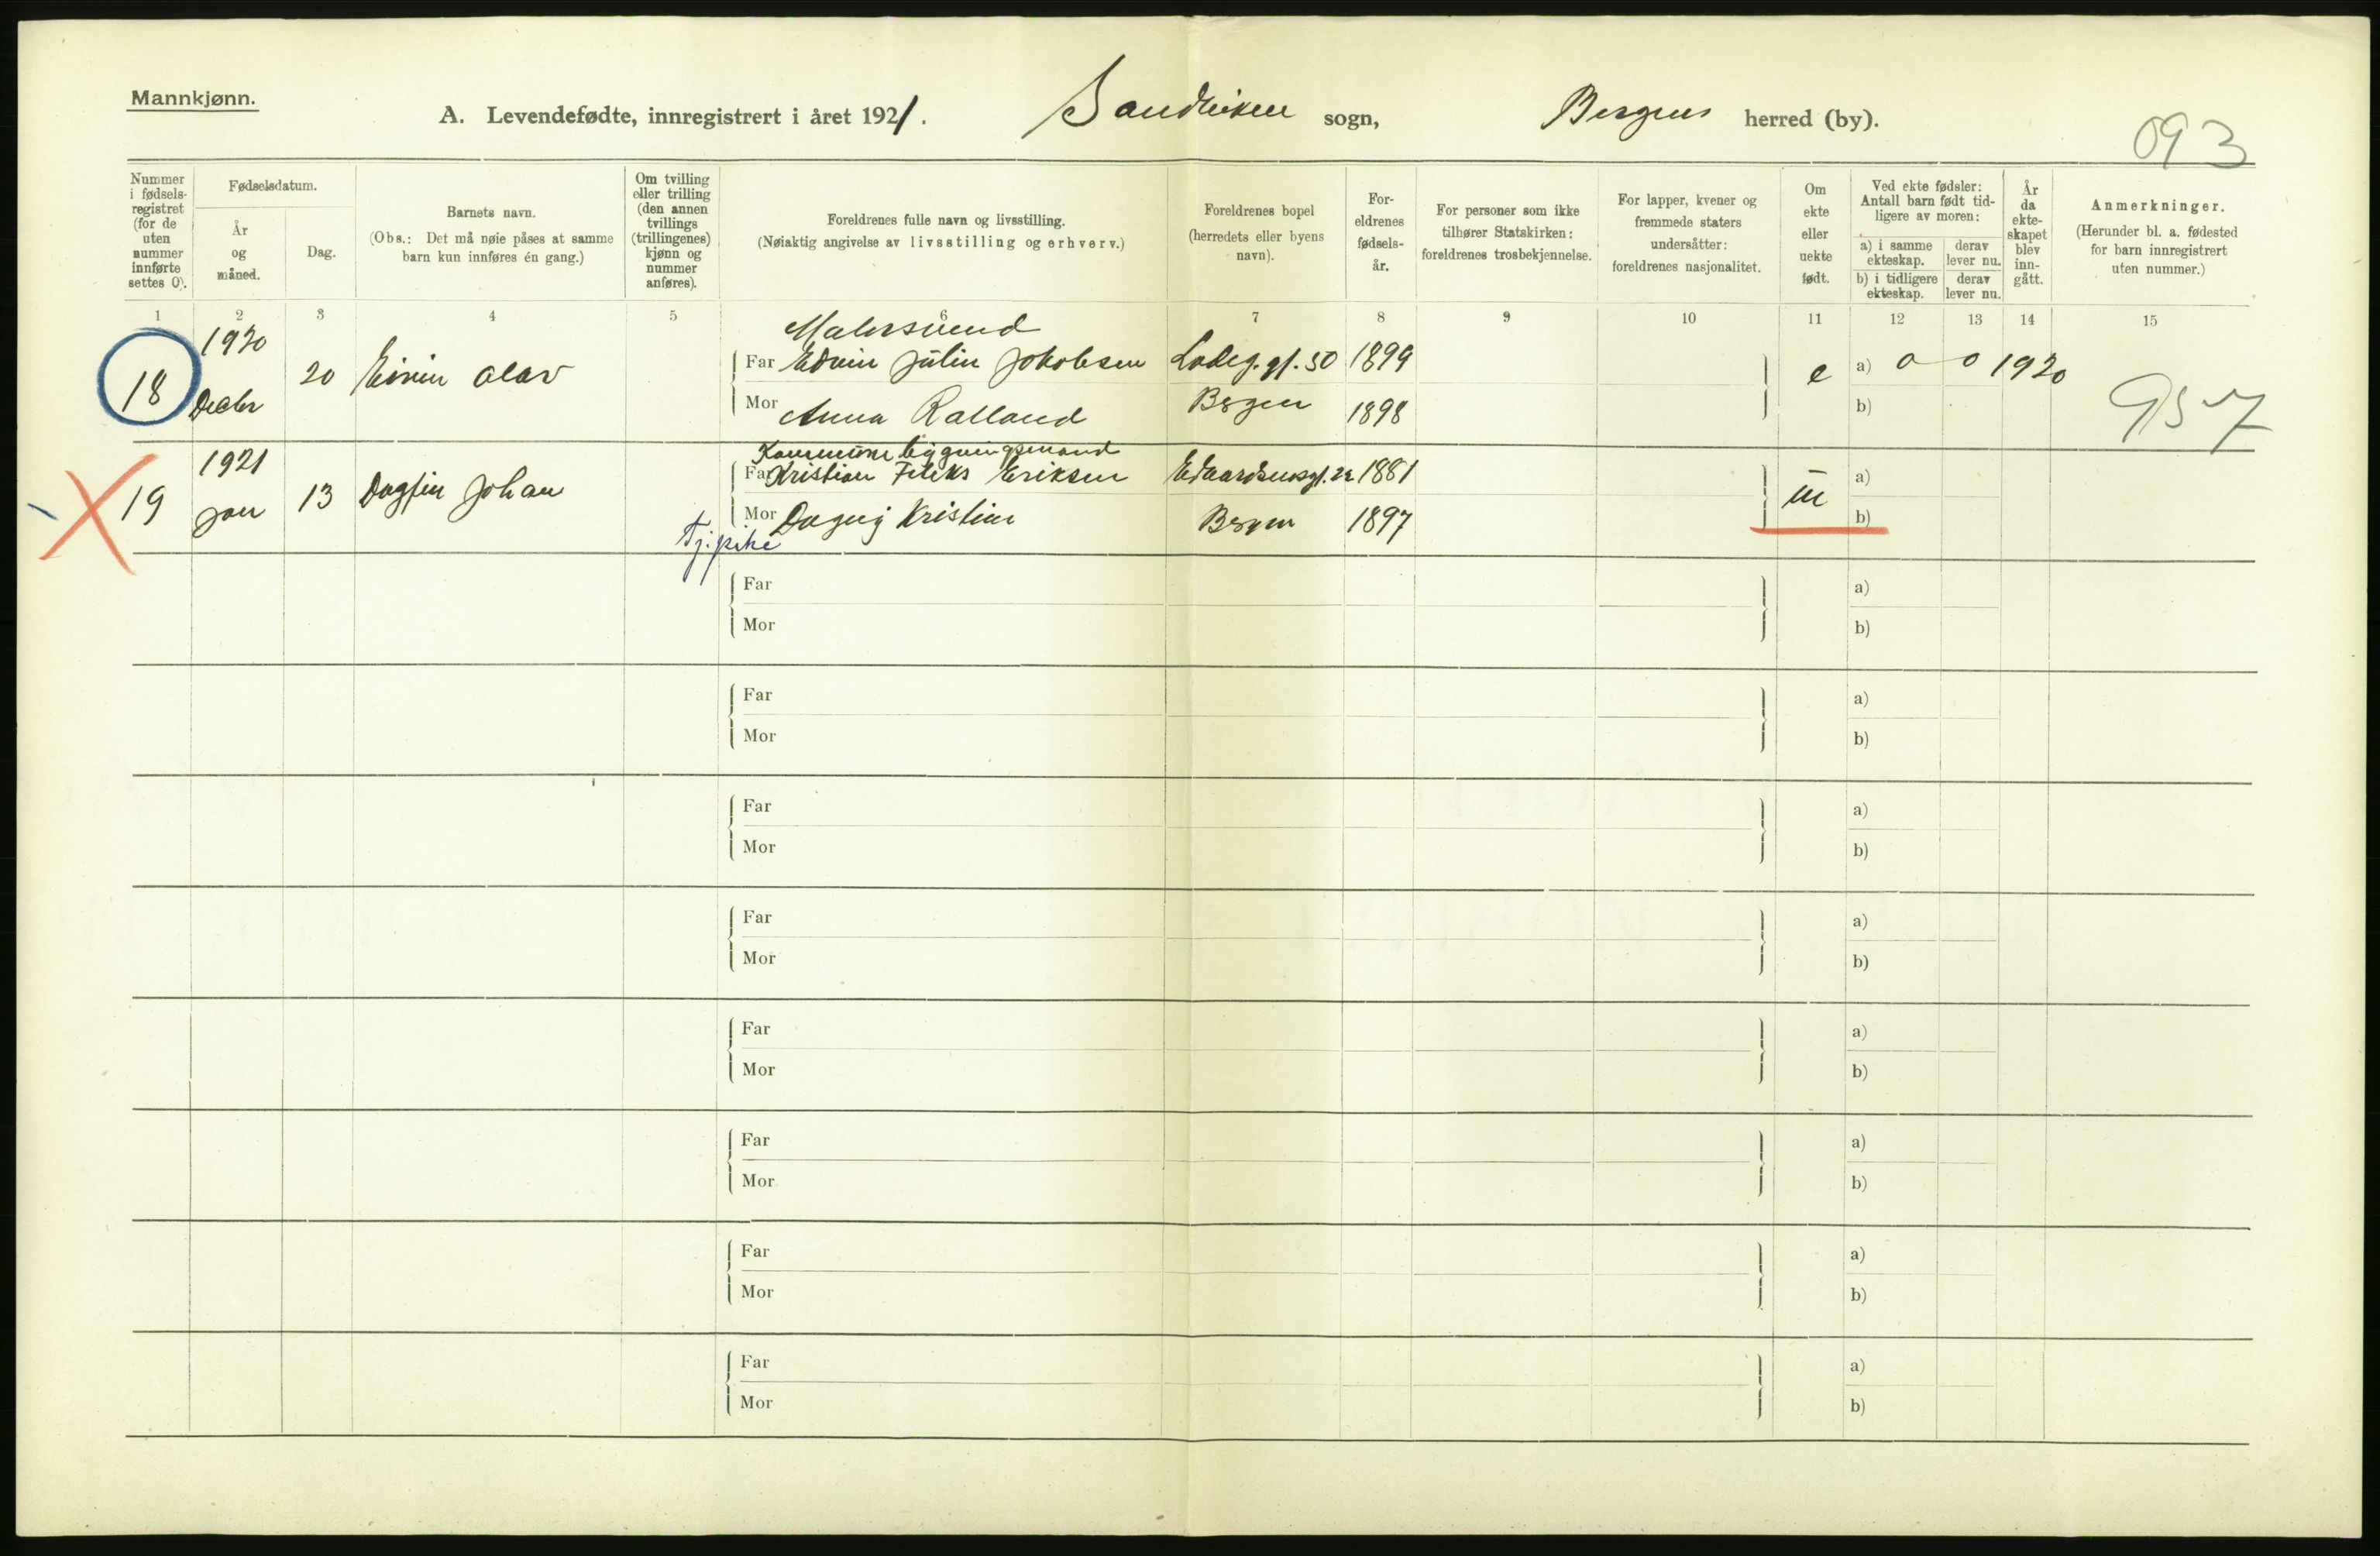 Mannkjønn.
A. Levendefødte, innregistrert i året 1921. Sandviken sogn, Bergens herred (by).
093
Nummer i fødselsregistret (for de uten nummer innførte settes 0).
Fødselsdatum.
År og måned.
Dag.
Barnets navn.
(Obs.: Det må nøie påses at samme barn kun innføres én gang.)
Om tvilling eller trilling (den annen tvillings (trillingenes) kjønn og nummer anføres).
Foreldrenes fulle navn og livsstilling.
(Nøiaktig angivelse av livsstilling og erhverv.)
Foreldrenes bopel (herredets eller byens navn).
Foreldrenes fødselsår.
For personer som ikke tilhører Statskirken: foreldrenes trosbekjennelse.
For lapper, kvener og fremmede staters undersåtter: foreldrenes nasjonalitet.
Om ekte eller uekte født.
Ved ekte fødsler: Antall barn født tidligere av moren:
a) i samme ekteskap. derav lever nu.
b) i tidligere ekteskap. derav lever nu.
År da ekteskapet blev inngått.
Anmerkninger.
(Herunder bl. a. fødested for barn innregistrert uten nummer.)
1 2 3 4 5 6 7 8 9 10 11 12 13 14 15
Malersvend
18 1920 Decbr 20 Eivin Olav
Far Edvin Julin Jakobsen Ladeg. gt. 50 1899
Mor Anna Ralland Bergen 1898
e a) 0 0 1920
b)
957
19 1921 Jan 13 Dagfin Johan
Far Kristian Feliks Eriksen 1881
Mor Dagny Kristine Bergen 1897
Tj.pike
a)
b)
Far a)
Mor b)
Far a)
Mor b)
Far a)
Mor b)
Far a)
Mor b)
Far a)
Mor b)
Far a)
Mor b)
Far a)
Mor b)
Far a)
Mor b)